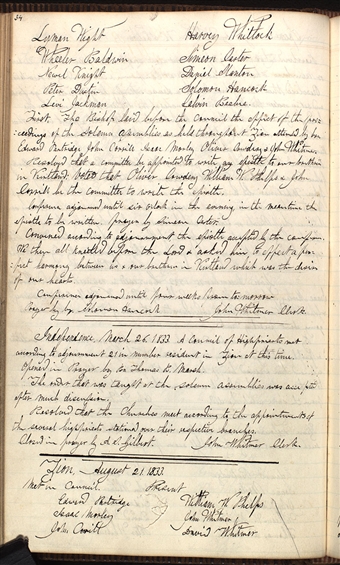 34.
Lyman Wight Harvey Whitlock
Wheeler Baldwin Simeon Carter
Newel Knight Daniel Stanton
Peter Dustin Solomon Hancock
Levi Jackman Calvin Beebe
First. The Bishop laid before the Council the effect of the proc-
ceedings of the Solemn Assemblies as held throughout Zion attened by br
Edward Partridge John Corrill Isaac Morley Oliver Cowdery & John Whitmer
Resolved that a committee be appointed to write an epistle to our brethren
in Kirtland Voted that Oliver Cowdery William W. Phelps & John
Corrill be the committee to write the epistle.
Conference adjourned until six oclock in the evening, in the meantime the
epistle to be written, prayer by Simeon Carter.
Convened according to adjournment the epistle accepted by the conference
they all kneeled before the Lord & asked him to effect a per-
fect harmony between us & our brethren in Kirtland which was the desire
of our hearts.
Conference adjourned until four weeks from tomorrow
Prayer by br Solomon Hancock John Whitmer Clerk.
Independence, March 26. 1833 A Council of Highpriests met
according to adjournment 21 in number resident in Zion at this time.
Opened in Prayer by br Thomas B. Marsh.
The order that was taught at the solemn assemblies was accepted
after much discussion.
Resolved that the Churches meet according to the appointments of
the several highpriests stationed over their respective branches.
Closed in prayer by A. S. Gilbert. John Whitmer Clerk.
Zion, August 21. 1833.
Met in Council Present
Edward Partridge William W. Phelps
Isaac Morley John Whitmer
John Corrill David Whitmer